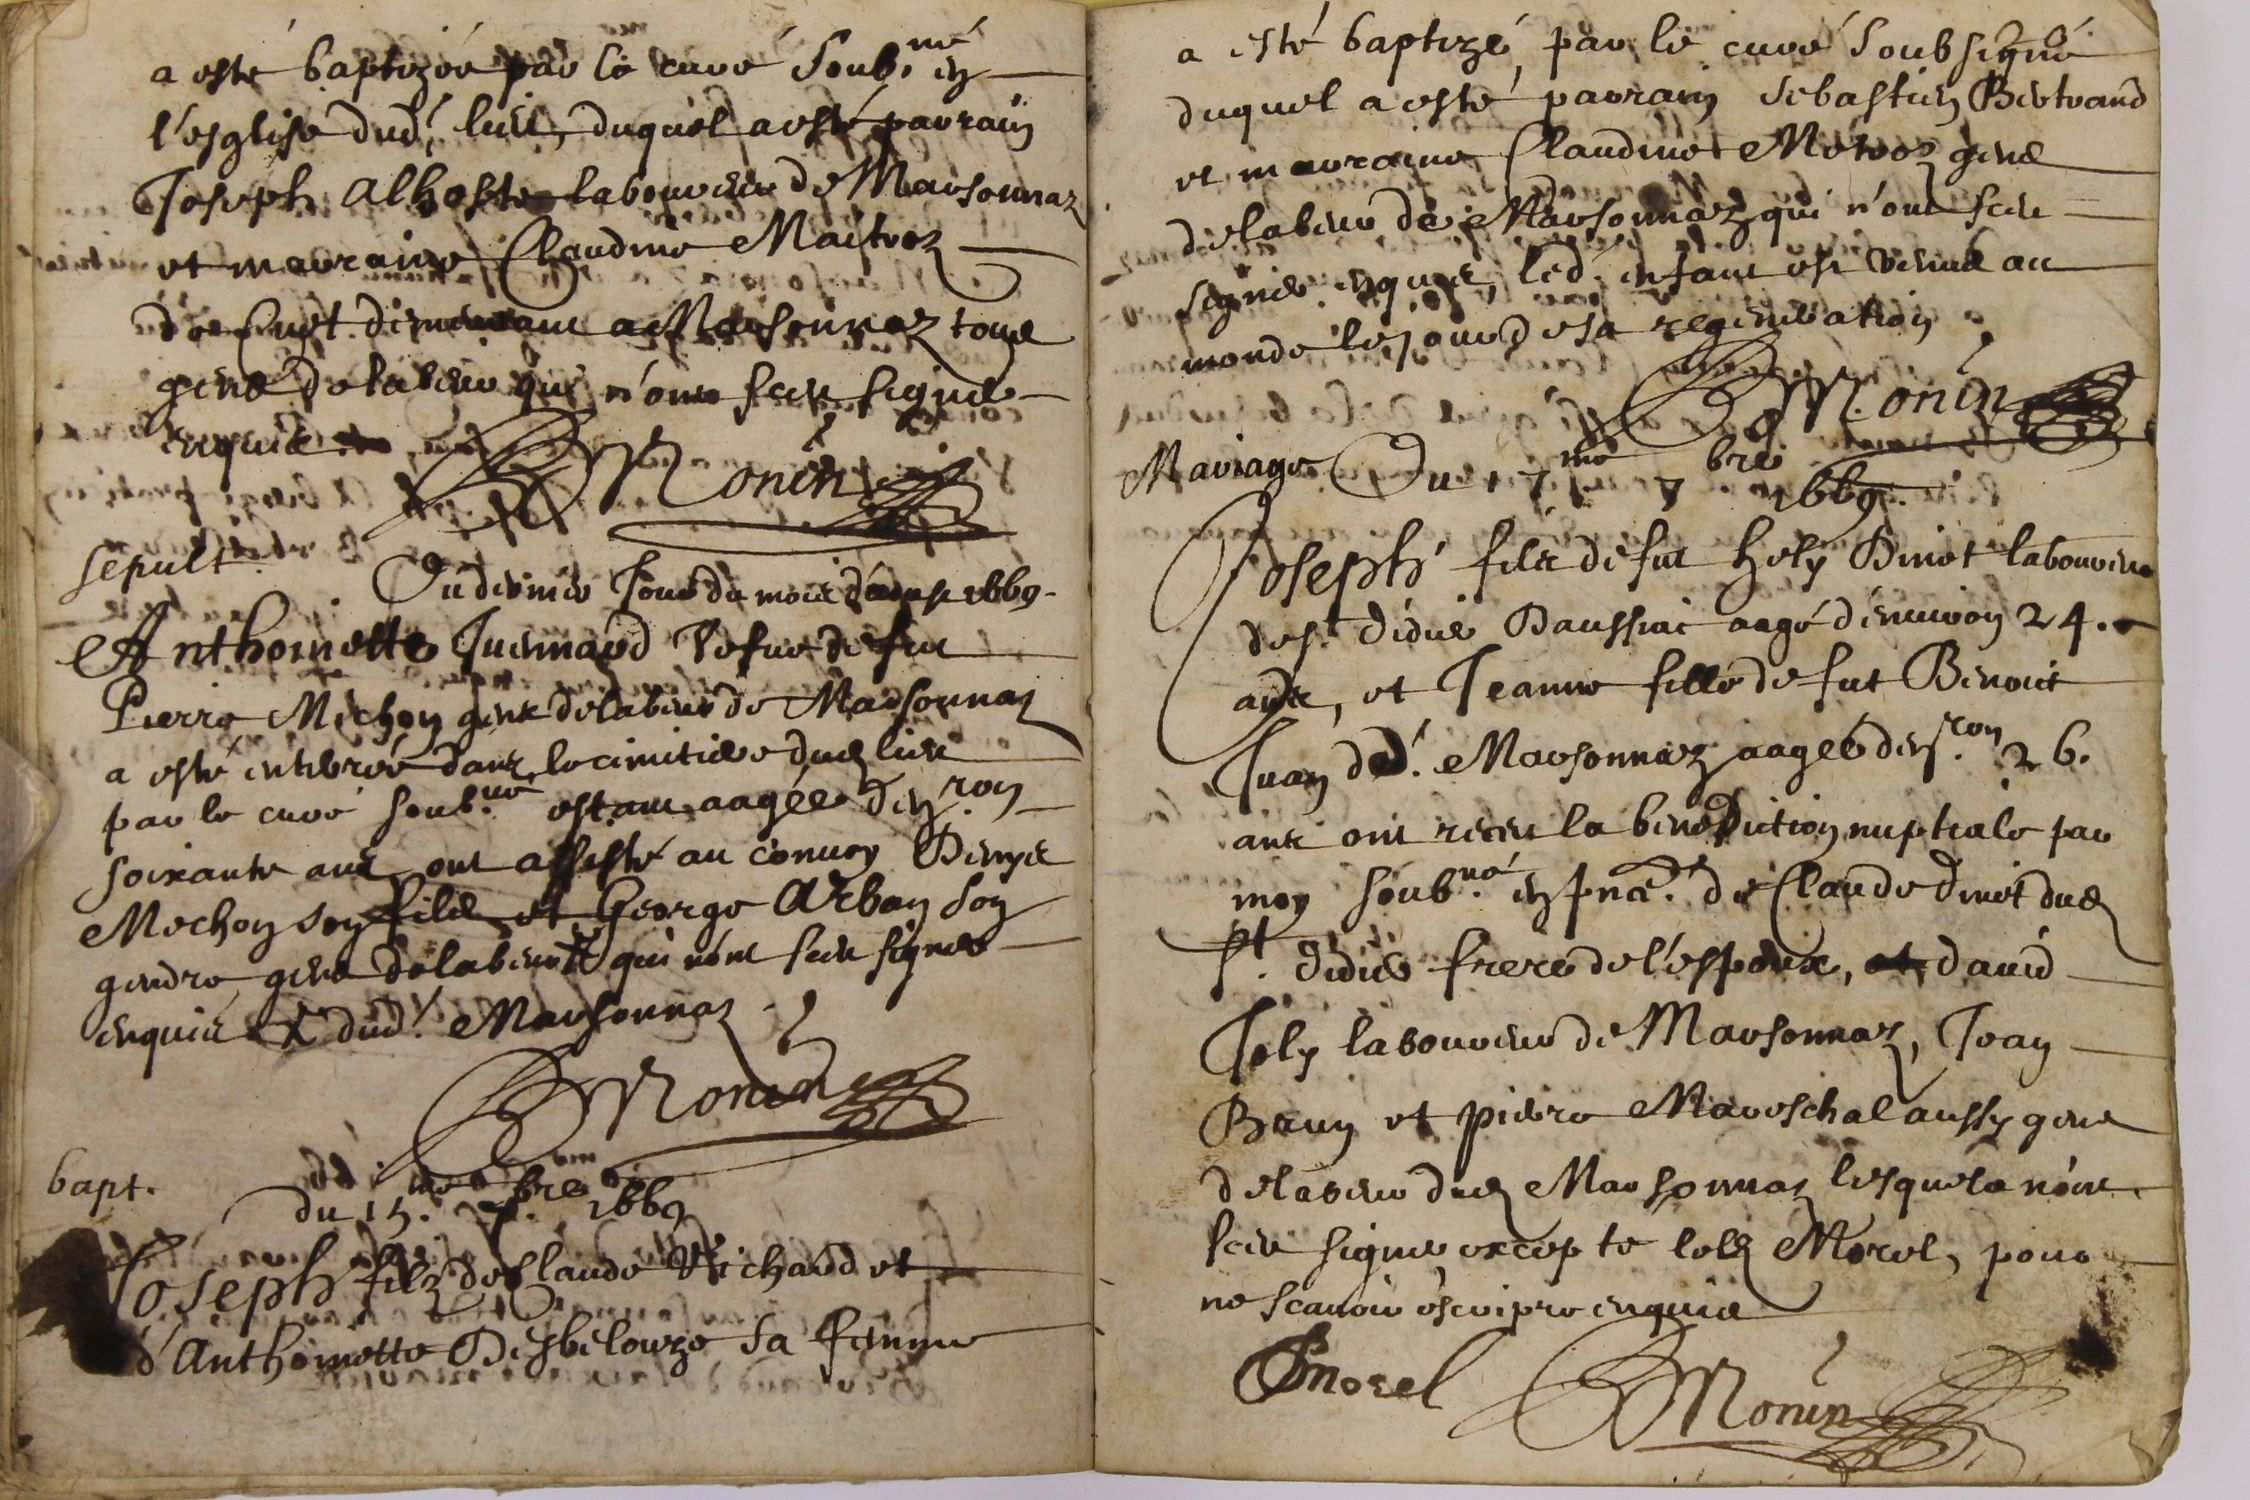 a esté baptizée par le curé soub.né en
l'esglise dud.' lieu, duquel a esté parrain
Joseph Alhoste laboureur de Marsonnaz
et marraine Claudine Maitroz
de Cuet demeurant a Marsonnaz tous
gens de labeur qui n'ont sceu signer
enquis
Monin
sepult.
Du dernier Jour du mois d'aoust 1669.
Anthoinette Juennaud vefue de fut
Pierre Michon gens de labeur de Marsonnaz
a esté enterrée dans le cimitiere dud lieu
par le curé soub.né estant aagée d'en.ron
soixante ans, ont assisté au conuoy Denys
Mechon son filz et George Arban son
gendre gens de labeur qui n'ont sceu signer
enquis dud.' Marsonnaz
Monin
bapt.
du 15.me 7.bre 1669
Joseph filz de Claude Richard et
d'Anthoinette Desbelouze sa femme
a esté baptizé, par le curé soubsigné
duquel a esté parrain Sebastien Bertrand
et marraine Claudine Metroz gens
de labeur de Marsonnaz qui n'ont sceu
signer enquis, led.' enfant est venus au
monde le jour de sa regeneration
Monin
Mariage Du 17me 7bre 1669.
Joseph filz de fut hely Dinot laboureur
de s.t didier Daussiat aagé d'enuiron 24.
ans, et Jeanne fille de fut Benoist
Juan dud.' Marsonnaz aagée d'en.ron 26.
ans ont receu la benediction nuptiale par
moy soub.né en pnce. de Claude dinot dud
st. didier frere de l'espoux, david
Joly laboureur de Marsonnaz, Jean
Brun et pierre Mareschal aussy gens
de labeur dud Marsonnaz lesquels n'ont
sceu signer, excepte led Morel, pour
ne scauoir escripre enquis
Morel Monin